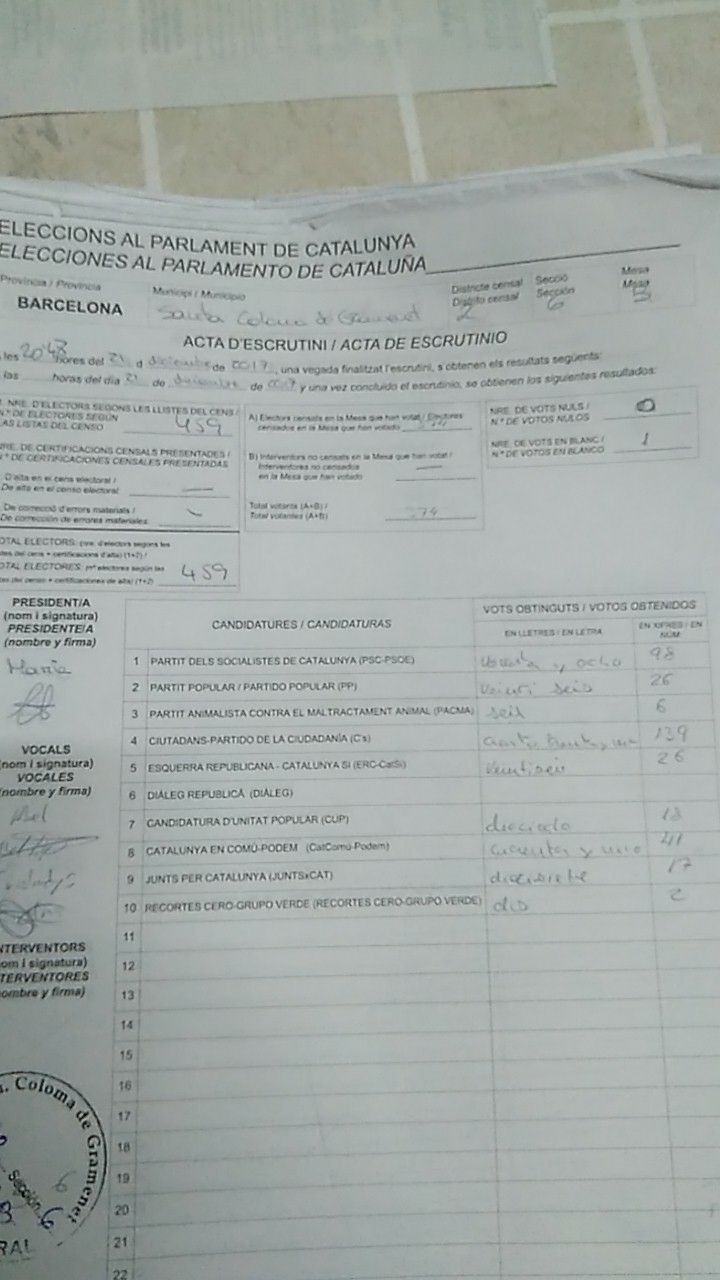 ELECCIONS AL PARLAMENT DE CATALUNYA
ELECCIONES AL PARLAMENTO DE CATALUÑA
Província / Provincia
BARCELONA
Municipi / Municipio
Santa Coloma de Gramenet
Districte censal
Distrito censal
2
Secció
Sección
6
Mesa
Mesa
B
ACTA D'ESCRUTINI / ACTA DE ESCRUTINIO
les 20'48 hores del 21 d diciembre de 2017, una vegada finalitzat l'escrutini, s'obtenen els resultats següents:
las horas del día 21 de diciembre de 2017 y una vez concluido el escrutinio, se obtienen los siguientes resultados:
NRE. D'ELECTORS SEGONS LES LLISTES DEL CENS /
N.º DE ELECTORES SEGÚN
LAS LISTAS DEL CENSO 459
NRE. DE CERTIFICACIONS CENSALS PRESENTADES /
N.º DE CERTIFICACIONES CENSALES PRESENTADAS
D'alta en el cens electoral /
De alta en el censo electoral: —
De correcció d'errors materials /
De corrección de errores materiales:
TOTAL ELECTORS: (nre. d'electors segons les
llistes del cens + certificacions d'alta) (1+2) /
TOTAL ELECTORES: (nº electores según las
listas del censo + certificaciones de alta) (1+2) 459
A) Electors censats en la Mesa que han votat / Electores
censados en la Mesa que han votado
B) Interventors no censats en la Mesa que han votat /
Interventores no censados
en la Mesa que han votado —
Total votants (A+B) /
Total votantes (A+B) 374
NRE. DE VOTS NULS /
N.º DE VOTOS NULOS 0
NRE. DE VOTS EN BLANC /
N.º DE VOTOS EN BLANCO 1
PRESIDENT/A
(nom i signatura)
PRESIDENTE/A
(nombre y firma)
María
VOCALS
(nom i signatura)
VOCALES
(nombre y firma)
INTERVENTORS
(nom i signatura)
INTERVENTORES
(nombre y firma)
CANDIDATURES / CANDIDATURAS
VOTS OBTINGUTS / VOTOS OBTENIDOS
EN LLETRES / EN LETRA
EN XIFRES / EN NÚM.
1 PARTIT DELS SOCIALISTES DE CATALUNYA (PSC-PSOE) noventa y ocho 98
2 PARTIT POPULAR / PARTIDO POPULAR (PP) veinti seis 26
3 PARTIT ANIMALISTA CONTRA EL MALTRACTAMENT ANIMAL (PACMA) seis 6
4 CIUTADANS-PARTIDO DE LA CIUDADANÍA (C's) 139
5 ESQUERRA REPUBLICANA - CATALUNYA SÍ (ERC-CatSí) veintiseis 26
6 DIÀLEG REPUBLICÀ (DIÀLEG)
7 CANDIDATURA D'UNITAT POPULAR (CUP) dieciocho 18
8 CATALUNYA EN COMÚ-PODEM (CatComú-Podem) cuarenta y uno 41
9 JUNTS PER CATALUNYA (JUNTSxCAT) diecisiete 17
10 RECORTES CERO-GRUPO VERDE (RECORTES CERO-GRUPO VERDE) dos 2
11
12
13
14
15
16
17
18
19
20
21
22
Coloma de Gramenet
Sección 6